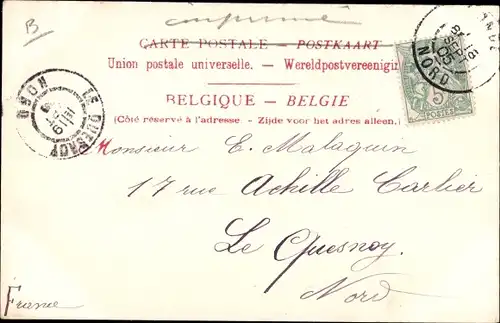 B
imprimé
CARTE POSTALE — POSTKAART
Union postale universelle. — Wereldpostvereenigin
BELGIQUE — BELGIE
(Côté réservé à l'adresse. - Zijde voor het adres alleen.)
NORD
5
POSTES
LE QUESNOY
NORD
Monsieur E. Malaquin
17 rue Achille Carlier
Le Quesnoy
Nord
France